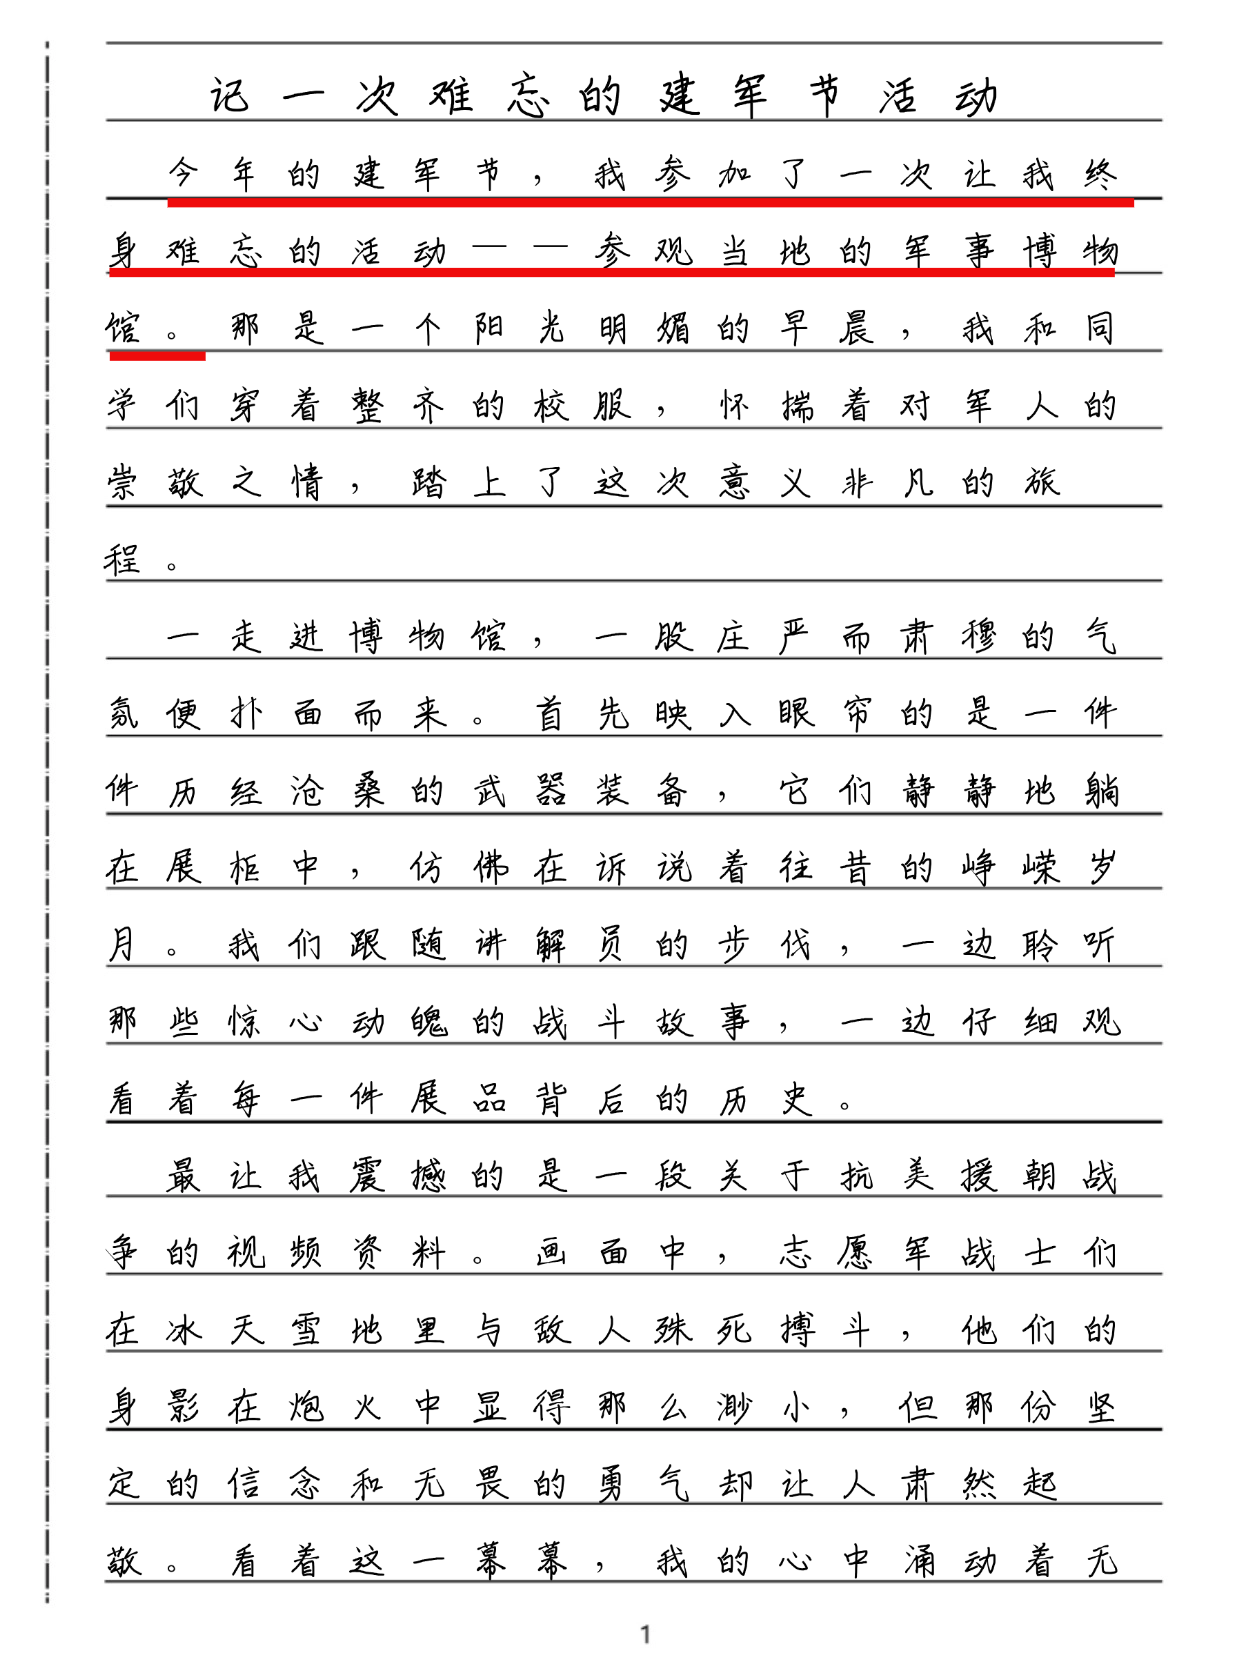 记一次难忘的建军节活动
今年的建军节，我参加了一次让我终
身难忘的活动——参观当地的军事博物
馆。那是一个阳光明媚的早晨，我和同
学们穿着整齐的校服，怀揣着对军人的
崇敬之情，踏上了这次意义非凡的旅
程。
一走进博物馆，一股庄严而肃穆的气
氛便扑面而来。首先映入眼帘的是一件
件历经沧桑的武器装备，它们静静地躺
在展柜中，仿佛在诉说着往昔的峥嵘岁
月。我们跟随讲解员的步伐，一边聆听
那些惊心动魄的战斗故事，一边仔细观
看着每一件展品背后的历史。
最让我震撼的是一段关于抗美援朝战
争的视频资料。画面中，志愿军战士们
在冰天雪地里与敌人殊死搏斗，他们的
身影在炮火中显得那么渺小，但那份坚
定的信念和无畏的勇气却让人肃然起
敬。看着这一幕幕，我的心中涌动着无
1